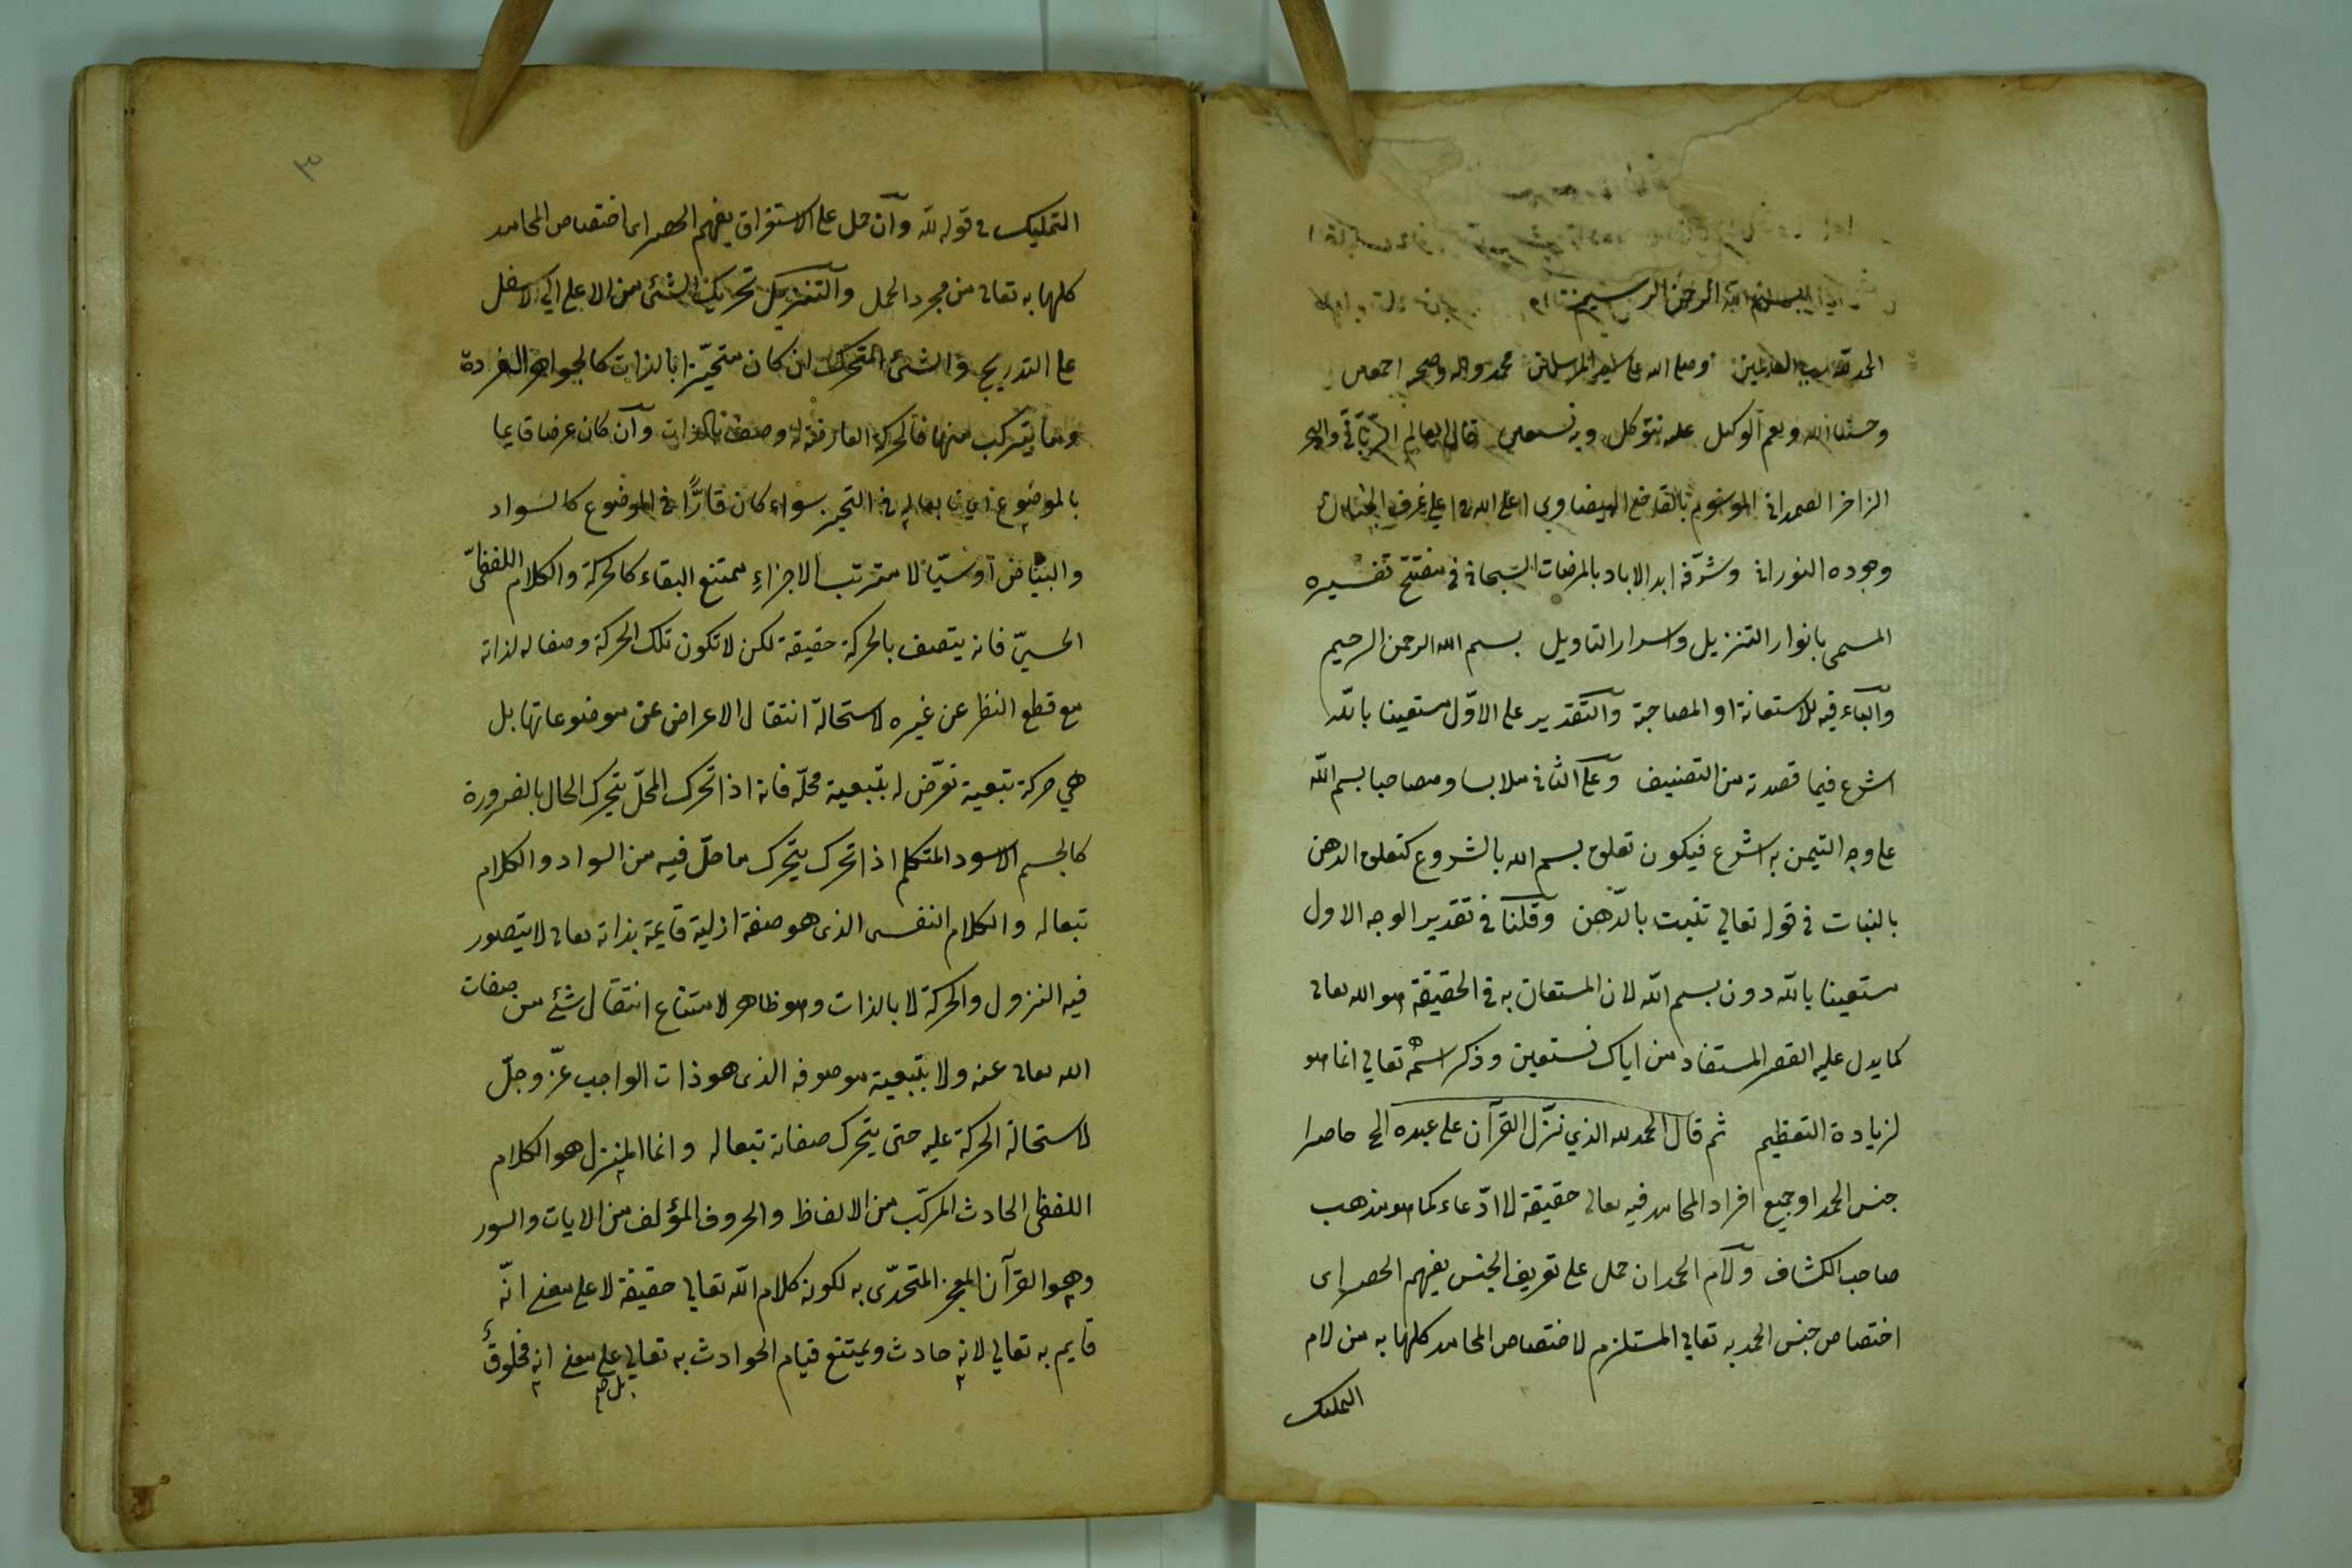 بسم الله الرحمن الرحيم
الحمد لله رب العالمين وصلى الله على سيد المرسلين محمد واله وصحبه اجمعين
وحسبنا الله ونعم الوكيل عليه نتوكل وبه نستعين قال العالم الربّانىّ والبحر
الزاخر الصمدانى الموسوم بالقاضى البيضاوى اعلى الله فى اعلى غرف الجنان
وجوده النورانى وشرّفه ابد الاباد بالمرضات السبحانى فى مفتتح تفسيره
المسمى بانوار التنزيل واسرار التاويل بسم الله الرحمن الرحيم
والباء فيه للاستعانة او المصاحبة والتقدير على الاوّل مستعينا بالله
اشرع فيما قصدته من التصنيف وعلى الثانى ملابسا ومصاحبا بسم الله
على وجه التيمن به اشرع فيكون تعلق بسم الله بالشروع كتعلق الدهن
بالنبات فى قوله تعالى تنبت بالدّهن وقلنا فى تقدير الوجه الاول
مستعينا بالله دون بسم الله لان المستعان به فى الحقيقة هو الله تعالى
كما يدل عليه القصر المستفاد من اياك نستعين وذكر اسمه تعالى انما هو
لزيادة التعظيم ثم قال الحمد لله الذي نزّل القرآن على عبده الخ حاصرا
جنس الحمد او جميع افراد المحامد فيه تعالى حقيقة لا ادّعاء كما هو مذهب
صاحب الكشاف ولام الحمد ان حمل على تعريف الجنس يفهم الحصر اى
اختصاص جنس الحمد به تعالى المستلزم لاختصاص المحامد كلها به من لام
التمليك
٣
التمليك فى قوله لله وآن حمل على الاستغراق يفهم الحصر اى اختصاص المحامد
كلها به تعالى من مجرد الحمل والتنزيل تحريك الشئ من الاعلى الى الاسفل
على التدريج والشئ المتحرك ان كان متحيّزا بالذات كالجواهر الفردة
وما يتركب منها فالحركة العارضة له وصف بالذات وآن كان عرضا قايما
بالموضوع اى تابعا له فى التحيز سواء كان قارًّا فى الموضوع كالسواد
والبياض او سيّالا مترتب الاجزاء ممتنع البقاء كالحركة والكلام اللفظىّ
الحسيّ فانه يتصف بالحركة حقيقة لكن لا تكون تلك الحركة وصفا له لذاته
مع قطع النظر عن غيره لاستحالة انتقال الاعراض عن موضوعاتها بل
هي حركة تبعية تعرّض له بتبعية محلّه فانه اذا تحرك المحلّ يتحرك الحال بالضرورة
كالجسم الاسود المتكلم اذا تحرك يتحرك ما حلّ فيه من السواد والكلام
تبعا له والكلام النفسى الذى هو صفة ازلية قايمة بذاته تعالى لا يتصور
فيه النزول والحركة لا بالذات وهو ظاهر لامتناع انتقال شئ من صفات
الله تعالى عنه ولا بتبعية موصوفه الذى هو ذات الواجب عزّ وجلّ
لاستحالة الحركة عليه حتى يتحرك صفاته تبعا له وانما المنزل هو الكلام
اللفظى الحادث المركّب من الالفاظ والحروف المؤلف من الايات والسور
وهو القرآن المعجز المتحدّى به لكونه كلام الله تعالى حقيقة لا على معنى انّه
قايم به تعالى لانه حادث ويمتنع قيام الحوادث به تعالى على معنى انه مخلوق
بل صح